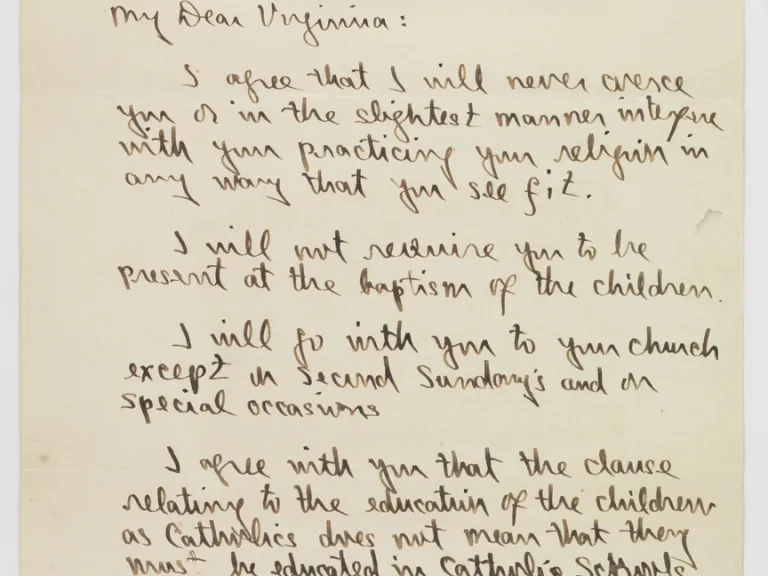 My Dear Virginia:
I agree that I will never coerce
you or in the slightest manner interfere
with your practicing your religion in
any way that you see fit.
I will not require you to be
present at the baptism of the children.
I will go with you to your church
except on second Sunday's and on
special occasions
I agree with you that the clause
relating to the education of the children
as Catholics does not mean that they
must be educated in Catholic Schools